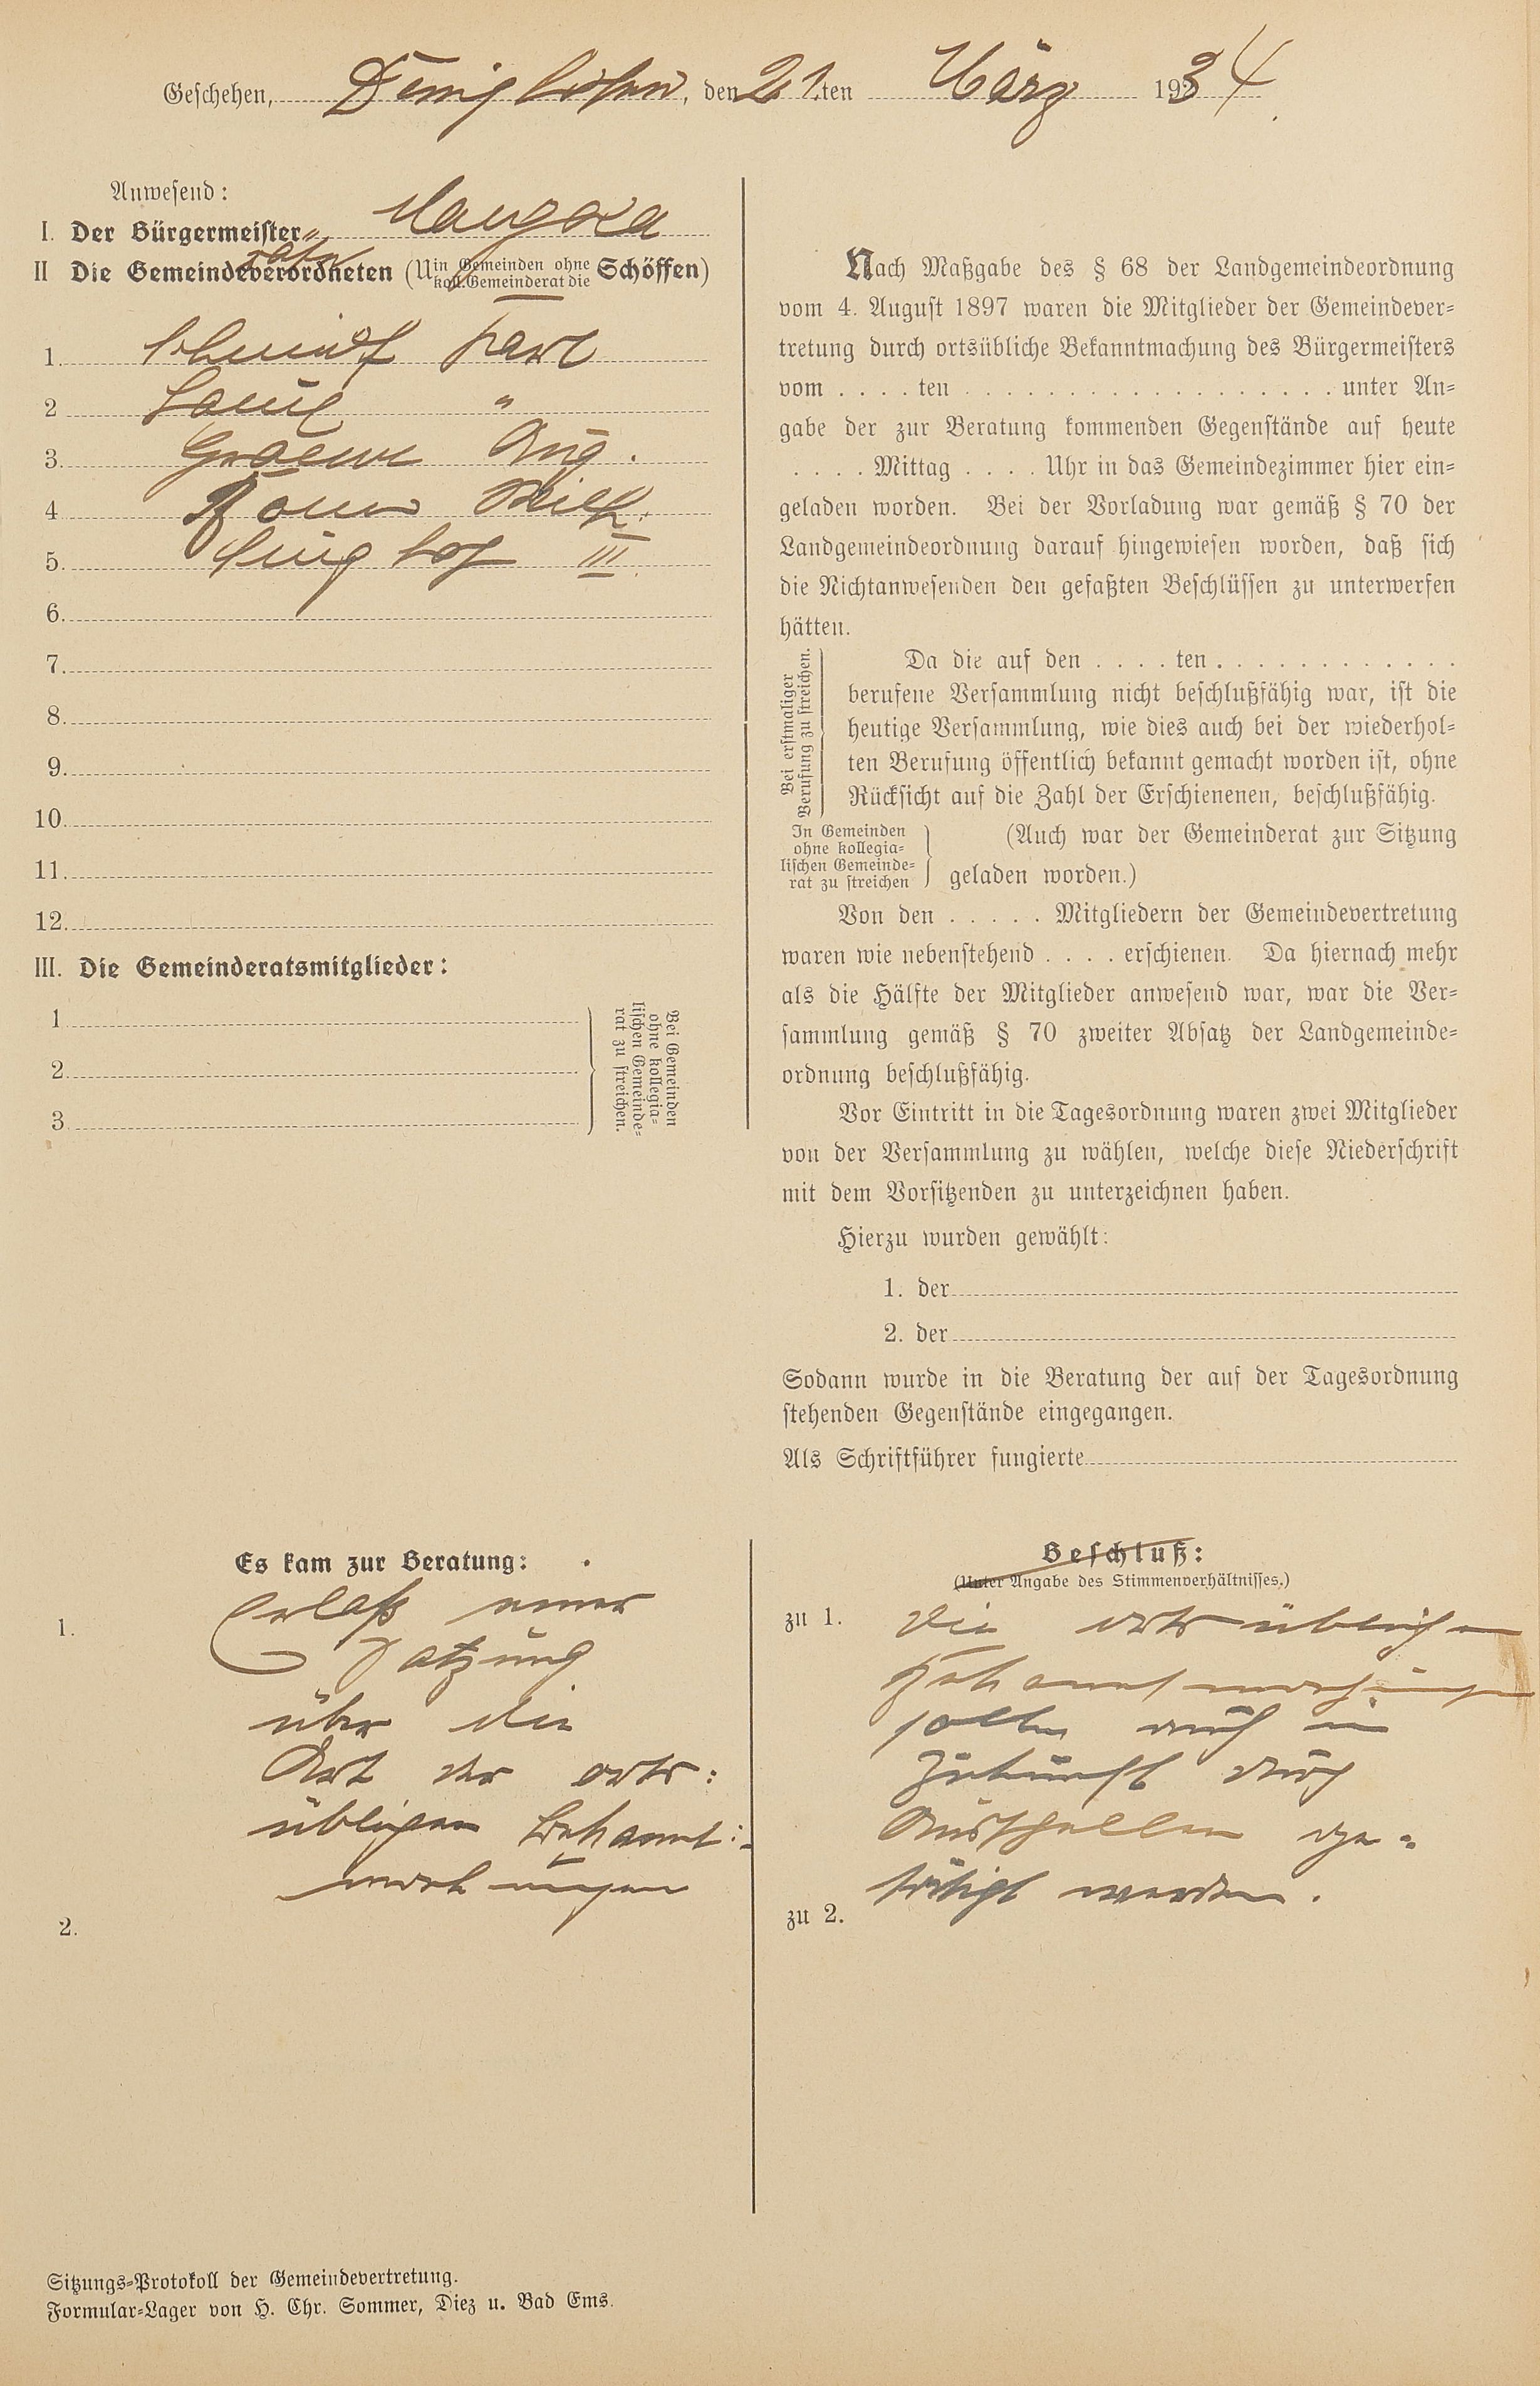 Geschehen, Dennighofen, den 21.ten März 1934
Anwesend:
I. Der Bürgermeister
II Die Gemeindeverordneten (U in Gemeinden ohne koll. Gemeinderat die Schöffen)
räte
1. Schmidt Karl
2 "
3. Aug.
4 Wilh.
5. III.
6.
7.
8.
9.
10.
11.
12.
III. Die Gemeinderatsmitglieder:
1
2
3
Bei Gemeinden
ohne kollegia-
lischen Gemeinde-
rat zu streichen.
Nach Maßgabe des § 68 der Landgemeindeordnung
vom 4. August 1897 waren die Mitglieder der Gemeindever-
tretung durch ortsübliche Bekanntmachung des Bürgermeisters
vom . . . . ten . . . . . . . . . . . . . . . . . . unter An-
gabe der zur Beratung kommenden Gegenstände auf heute
. . . . Mittag . . . . Uhr in das Gemeindezimmer hier ein-
geladen worden. Bei der Vorladung war gemäß § 70 der
Landgemeindeordnung darauf hingewiesen worden, daß sich
die Nichtanwesenden den gefaßten Beschlüssen zu unterwerfen
hätten.
Bei erstmaliger
Berufung zu streichen.
Da die auf den . . . . ten . . . . . . . . . . . .
berufene Versammlung nicht beschlußfähig war, ist die
heutige Versammlung, wie dies auch bei der wiederhol-
ten Berufung öffentlich bekannt gemacht worden ist, ohne
Rücksicht auf die Zahl der Erschienenen, beschlußfähig.
In Gemeinden
ohne kollegia-
lischen Gemeinde-
rat zu streichen
(Auch war der Gemeinderat zur Sitzung
geladen worden.)
Von den . . . . . Mitgliedern der Gemeindevertretung
waren wie nebenstehend . . . . erschienen. Da hiernach mehr
als die Hälfte der Mitglieder anwesend war, war die Ver-
sammlung gemäß § 70 zweiter Absatz der Landgemeinde-
ordnung beschlußfähig.
Vor Eintritt in die Tagesordnung waren zwei Mitglieder
von der Versammlung zu wählen, welche diese Niederschrift
mit dem Vorsitzenden zu unterzeichnen haben.
Hierzu wurden gewählt:
1. der
2. der
Sodann wurde in die Beratung der auf der Tagesordnung
stehenden Gegenstände eingegangen.
Als Schriftführer fungierte
Es kam zur Beratung:
1. Erlaß einer
Satzung
über die
Art der orts:
üblichen Bekannt:
machungen
2.
Beschluß:
(Unter Angabe des Stimmenverhältnisses.)
zu 1. Die ortsüblichen
Bekanntmachungen
sollen auch in
Zukunft durch
Ausschellen ge-
tätigt werden.
zu 2.
Sitzungs-Protokoll der Gemeindevertretung.
Formular-Lager von H. Chr. Sommer, Diez u. Bad Ems.